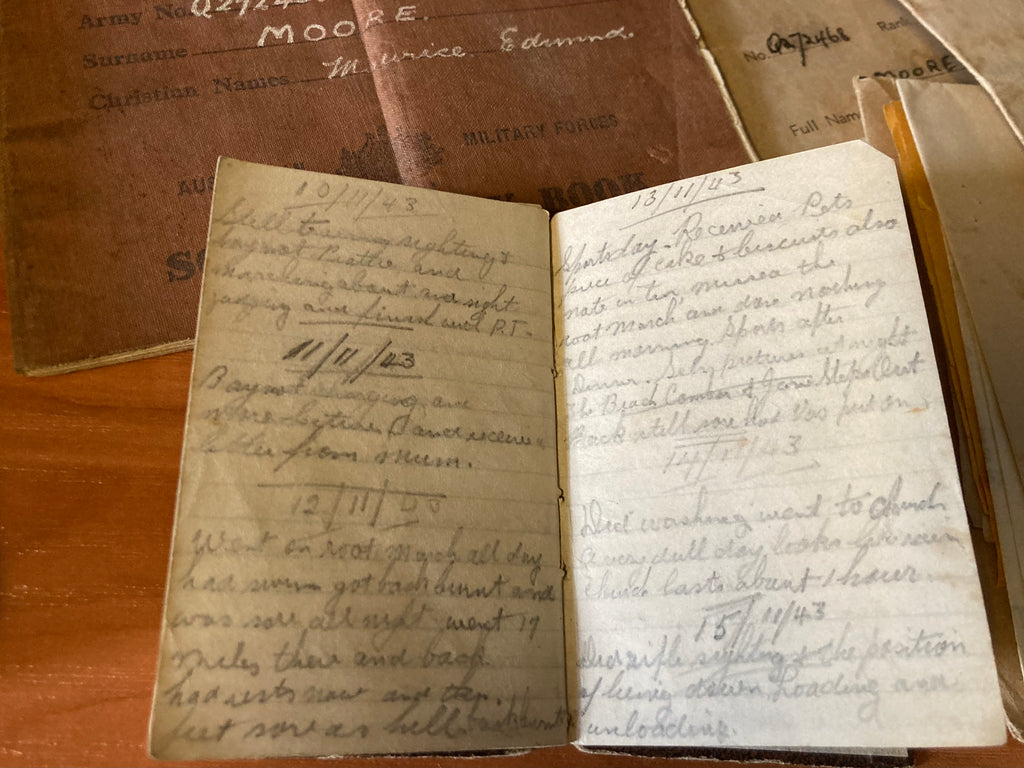 Army No. Q272468
Surname MOORE.
Christian Names Maurice Edmund.
MILITARY FORCES
BOOK
No. Q272468 Rank
MOORE
Full Name
10/11/43
Still training sighting &
and
marching about and night
judging and finish with P.T.
11/11/43
Bayonet charging and
more lectures and receive a
letter from Mum.
12/11/43
Went on root March all day
had swim got back burnt and
was sore all night went 17
miles there and back
had rests now and then.
feet sore as hell
13/11/43
Sports day. Receivien Pets
piece of cake & biscuits also
nate in ten missea the
root March and done nothing
all morning Sports after
Dinner. pictures at night
The Beach Comber & Jane Steps Out
Back still sore had Vas put on
14/11/43
Did washing went to church
a very dull day looks like rain
Church lasts about 1 hour.
15/11/43
Did rifle sighting & the position
of being down loading and
unloading.